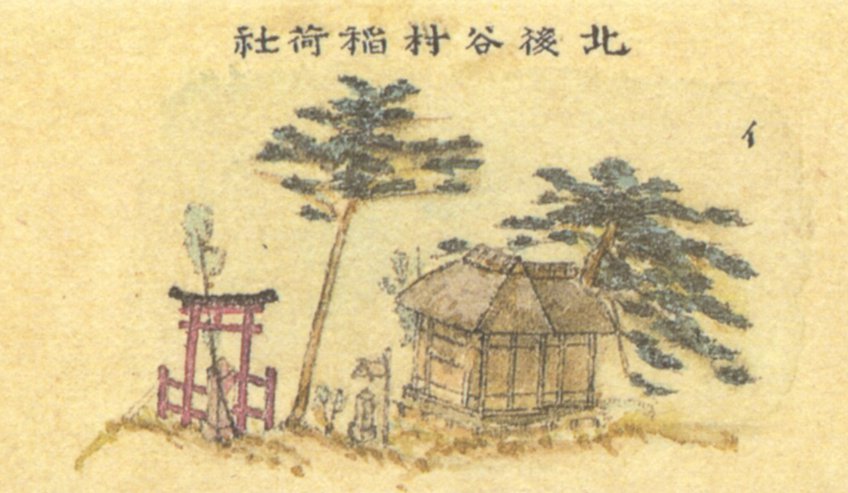 北後谷村稲荷社
イ